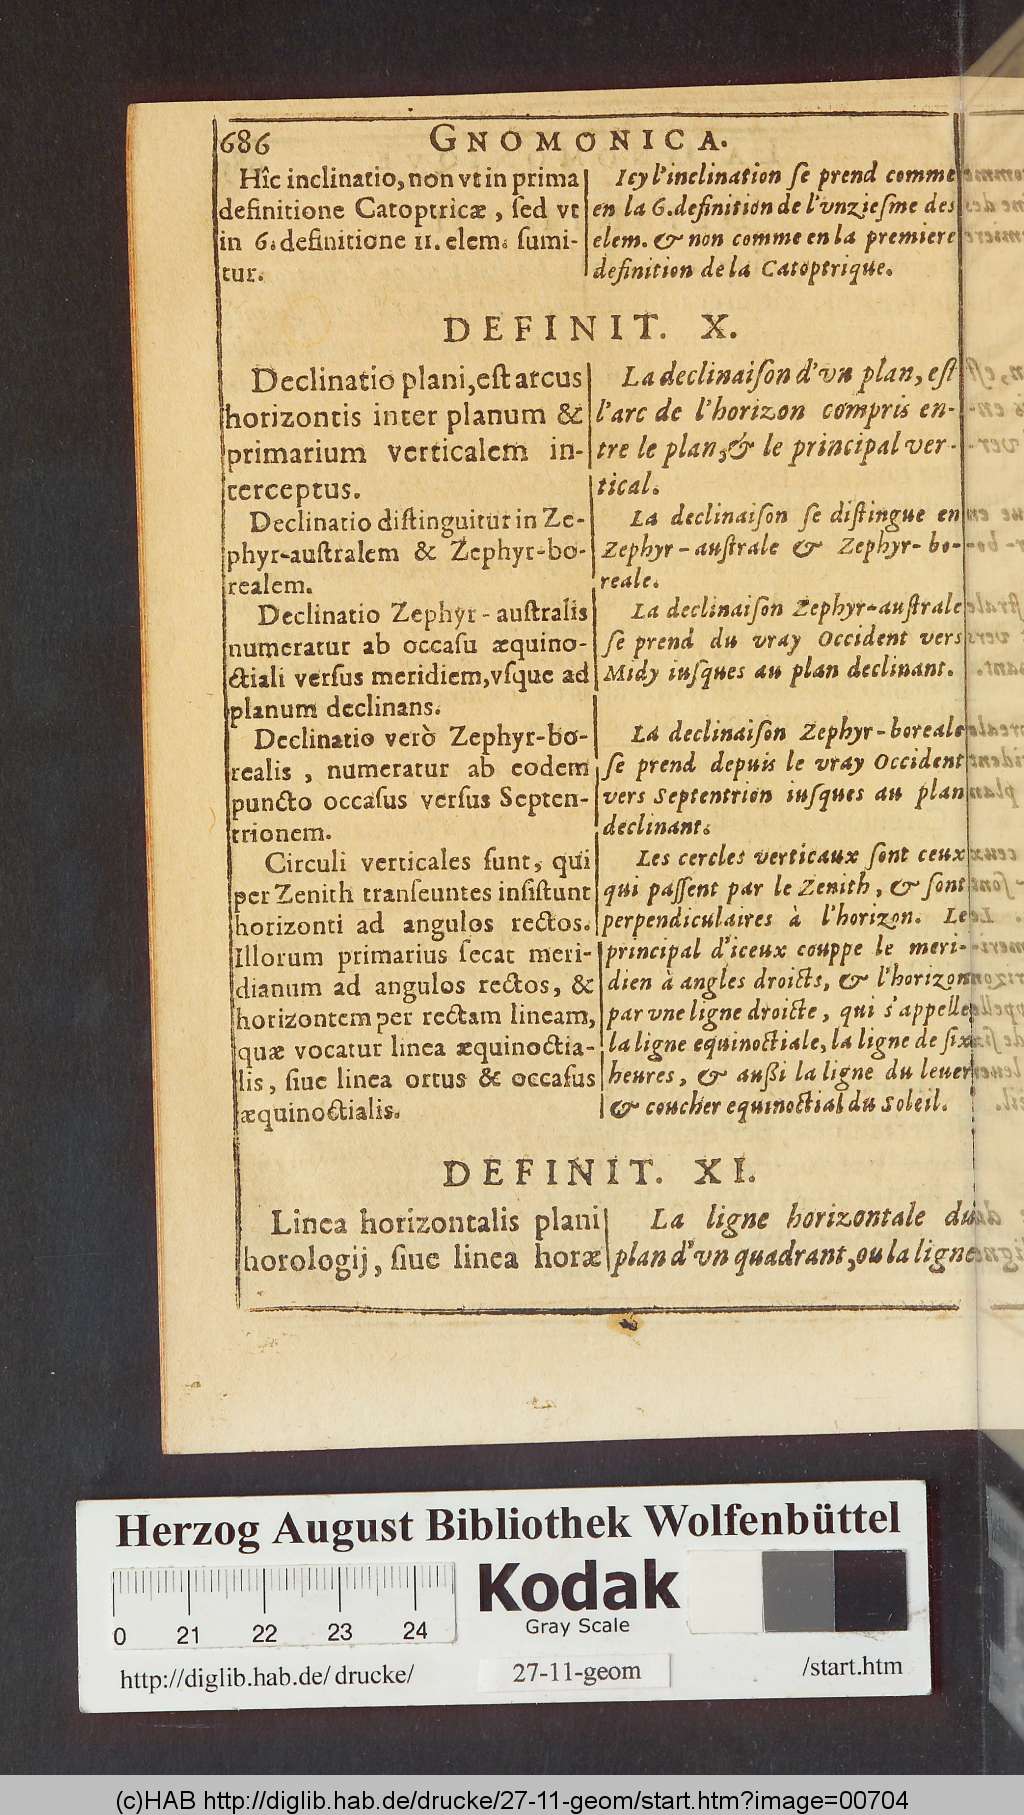 686 GNOMONICA.
Hîc inclinatio, non vt in prima
definitione Catoptricæ, ſed vt
in 6. definitione 11. elem. ſumi-
tur.
Icy l'inclination ſe prend comme
en la 6. definition de l'vnzieſme des
elem. & non comme en la premiere
definition de la Catoptrique.
DEFINIT. X.
Declinatio plani, eſt arcus
horizontis inter planum &
primarium verticalem in-
terceptus.
Declinatio diſtinguitur in Ze-
phyr-auſtralem & Zephyr-bo-
realem.
Declinatio Zephyr-auſtralis
numeratur ab occaſu æquino-
ctiali verſus meridiem, vſque ad
planum declinans.
Declinatio verò Zephyr-bo-
realis, numeratur ab eodem
puncto occaſus verſus Septen-
trionem.
Circuli verticales ſunt, qui
per Zenith tranſeuntes inſiſtunt
horizonti ad angulos rectos.
Illorum primarius ſecat meri-
dianum ad angulos rectos, &
horizontem per rectam lineam,
quæ vocatur linea æquinoctia-
lis, ſiue linea ortus & occaſus
æquinoctialis.
La declinaiſon d'vn plan, eſt
l'arc de l'horizon compris en-
tre le plan, & le principal ver-
tical.
La declinaiſon ſe diſtingue en
Zephyr-auſtrale & Zephyr-bo-
reale.
La declinaiſon Zephyr-auſtrale
ſe prend du vray Occident vers
Midy iuſques au plan declinant.
La declinaiſon Zephyr-boreale
ſe prend depuis le vray Occident
vers Septentrion iuſques au plan
declinant.
Les cercles verticaux ſont ceux
qui paſſent par le Zenith, & ſont
perpendiculaires à l'horizon. Le
principal d'iceux couppe le meri-
dien à angles droicts, & l'horizon
par vne ligne droicte, qui s'appelle
la ligne equinoctiale, la ligne de ſix
heures, & außi la ligne du leuer
& coucher equinoctial du Soleil.
DEFINIT. XI.
Linea horizontalis plani
horologij, ſiue linea horæ
La ligne horizontale du
plan d'vn quadrant, ou la ligne
Herzog August Bibliothek Wolfenbüttel
0 21 22 23 24
Kodak
Gray Scale
http://diglib.hab.de/drucke/ 27-11-geom /start.htm
(c)HAB http://diglib.hab.de/drucke/27-11-geom/start.htm?image=00704